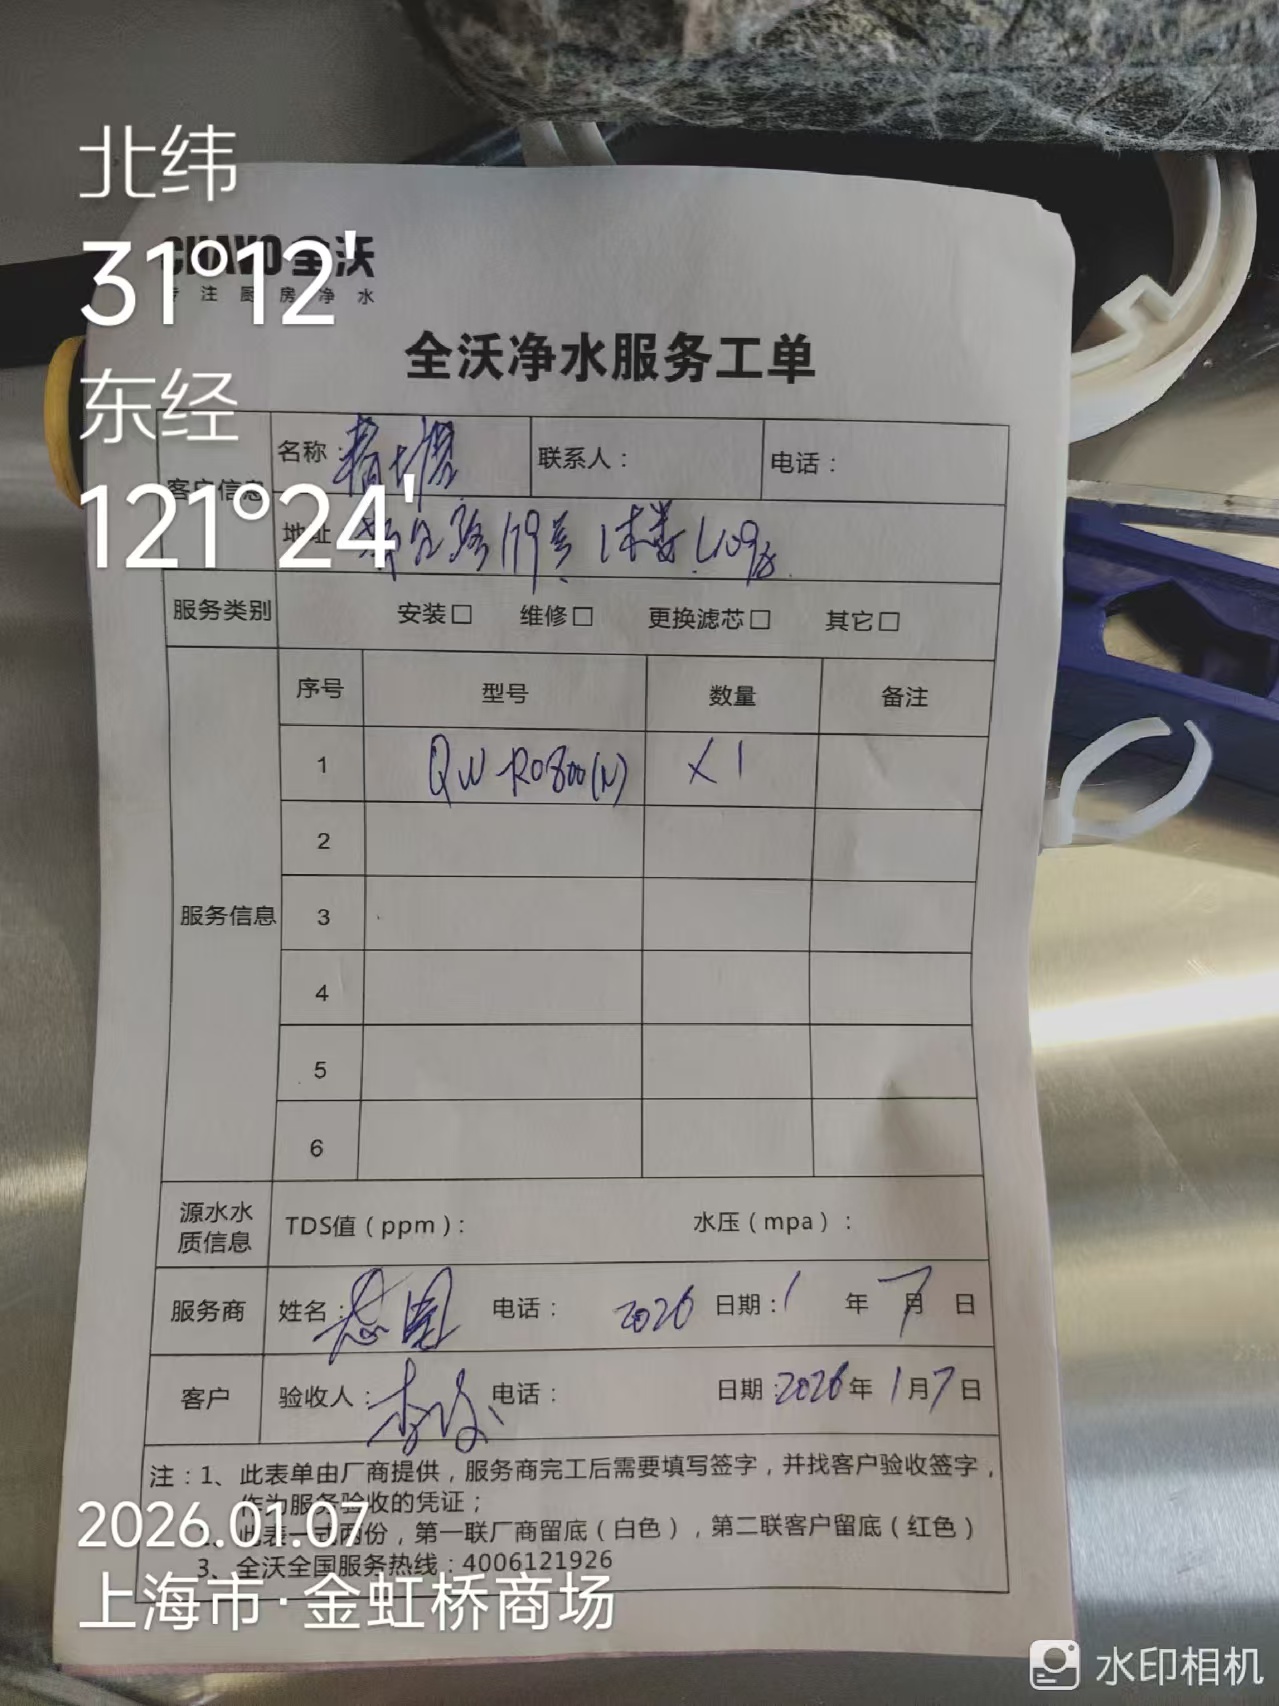 北纬
31°12'
东经
121°24'
CHAVO 全沃
专注厨房净水
全沃净水服务工单
客户信息
名称：
联系人：
电话：
地址 路179号 1楼 L109
服务类别
安装□ 维修□ 更换滤芯□ 其它□
服务信息
序号 型号 数量 备注
1 QW-RO800(N) X1
2
3
4
5
6
源水水质信息
TDS值（ppm）：
水压（mpa）：
服务商 姓名： 电话： 2026 日期：1 年 7 月 日
客户 验收人： 电话： 日期 2026年 1月7日
注：1、此表单由厂商提供，服务商完工后需要填写签字，并找客户验收签字，
作为服务验收的凭证；
2、此表一式两份，第一联厂商留底（白色），第二联客户留底（红色）
3、全沃全国服务热线：4006121926
2026.01.07
上海市·金虹桥商场
水印相机